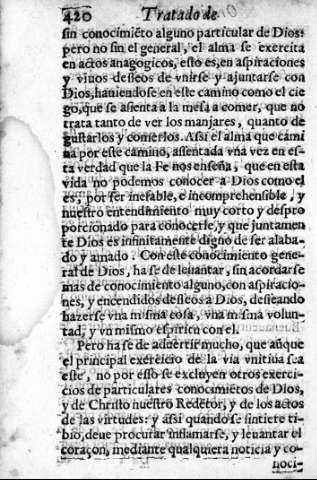 420 Tratado de
sin conocimiẽto alguno particular de Dios:
pero no sin el general, el alma se exercita
en actos anagogicos, esto es, en aspiraciones
y viuos deseos de vnirse y ajuntarse con
Dios, hauiendose en este camino como el cie
go, que se asienta a la mesa a comer, que no
trata tanto de ver los manjares, quanto de
gustarlos y comerlos. Assi el alma que cami
na por este camino, assentada vna vez en es-
ta verdad que la Fe nos enseña, que en esta
vida no podemos conocer a Dios como el
es, por ser inefable, e incomprehensible, y
nuestro entendimiento muy corto y despro
porcionado para conocerle, y que juntamen
te Dios es infinitamente digno de ser alaba-
do y amado. Con este conocimiento gene-
ral de Dios, ha se de leuantar, sin acordarse
mas de conocimiento alguno, con aspiracio-
nes, y encendidos deseos a Dios, deseando
hazerse vna misma cosa, vna misma volun-
tad, y vn mismo espiritu con el.
Pero ha se de aduertir mucho, que aũque
el principal exercicio de la via vnitiua sea
este, no por esso se excluyen otros exerci-
cios de particulares conocimiẽtos de Dios,
y de Christo nuestro Redẽtor, y de los actos
de las virtudes: y assi quando se sintiere ti-
bio, deue procurar inflamarse, y leuantar el
coraçon, mediante qualquiera noticia y co-
noci-